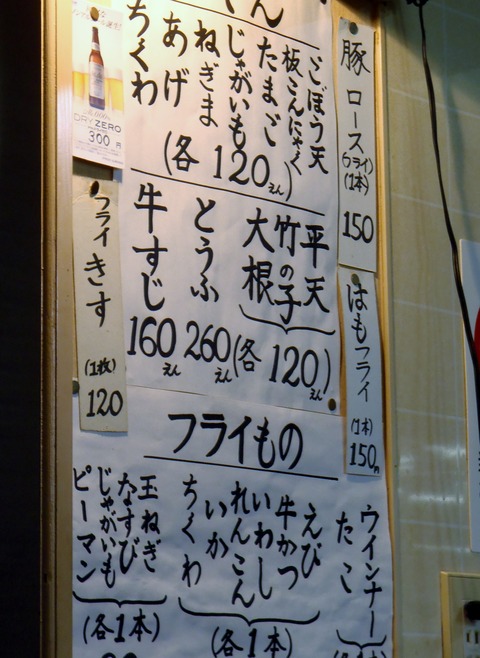 ごぼう天
板こんにゃく
たまご
じゃがいも
ねぎま
あげ
ちくわ
(各120えん)
平天
竹の子
大根
(各120えん)
とうふ
260えん
牛すじ
160えん
フライもの
ウインナー
たこ
えび
牛かつ
いわし
れんこん
いか
ちくわ
(各1本)
玉ねぎ
なすび
じゃがいも
ピーマン
(各1本)
豚ロース
(フライ)
(1本)
150
はもフライ
(1本)
150円
DRY ZERO
300円
フライきす
(1枚)
120